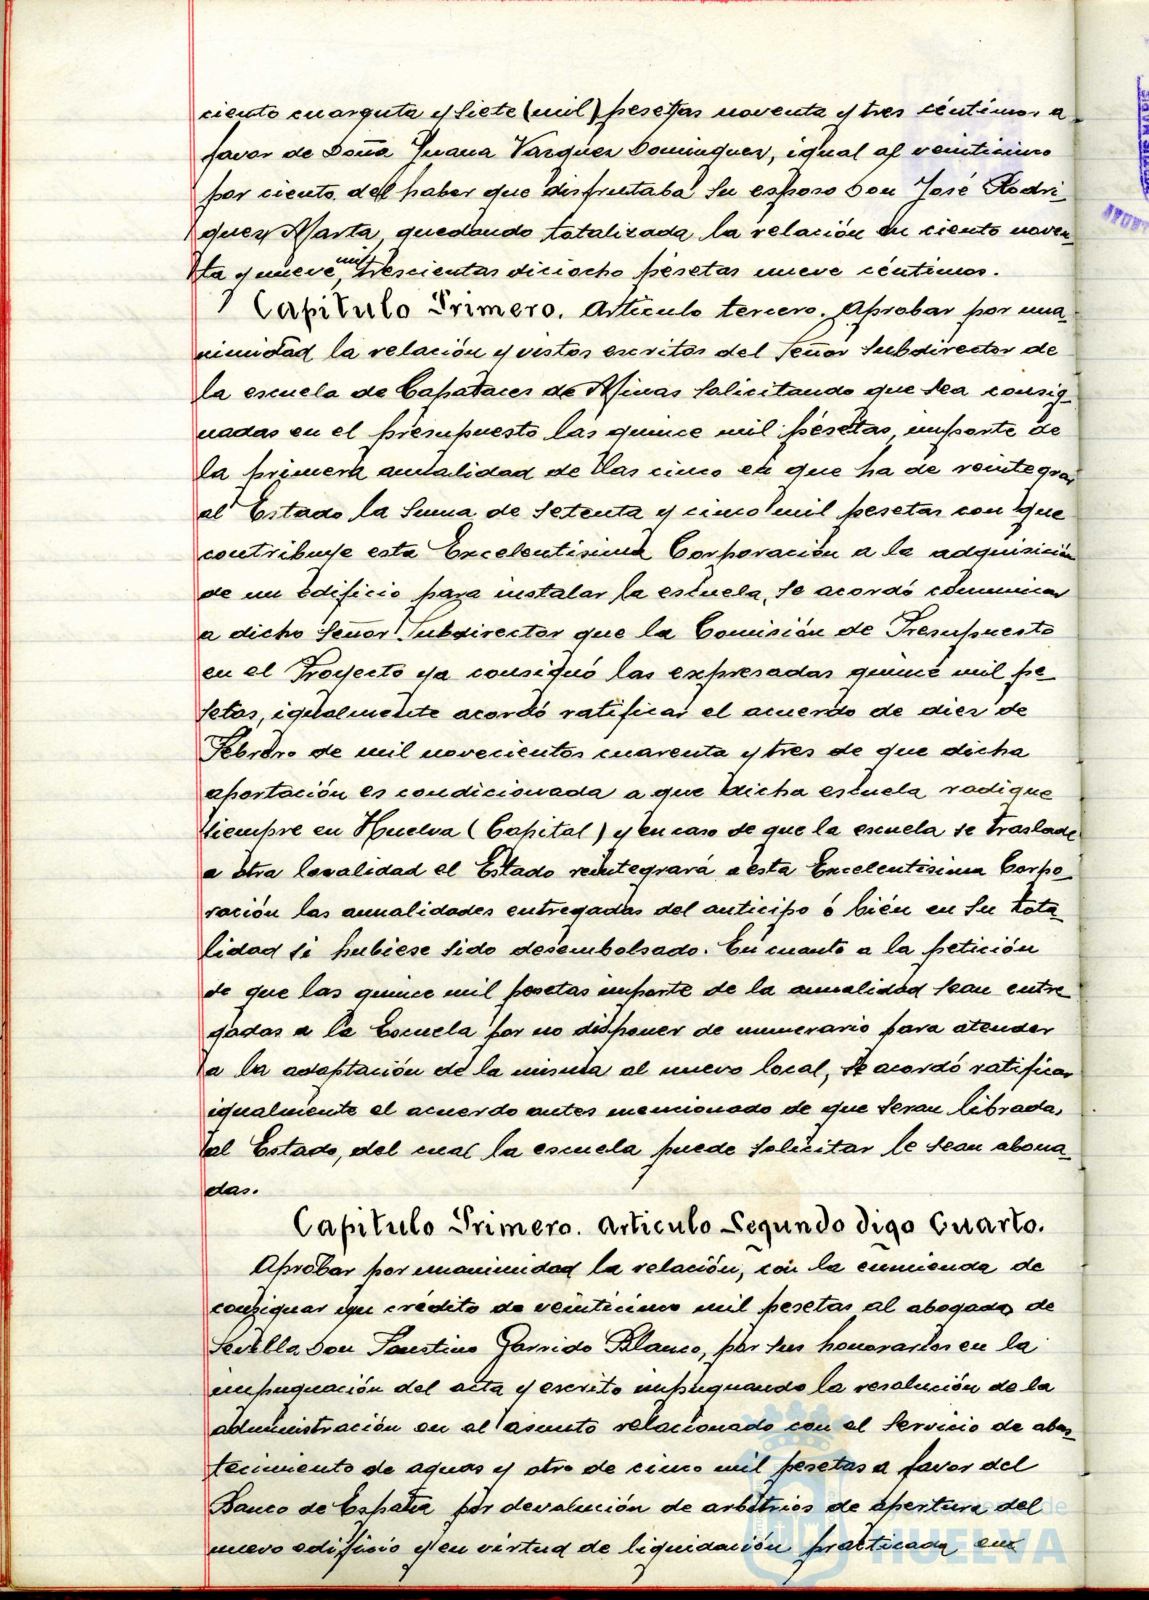 ciento cuarenta y siete (mil) pesetas noventa y tres céntimos a
favor de Doña Juana Vazquez Dominguez, igual al veinticinco
por ciento del haber que disfrutaba su esposo Don José Rodri-
guez Marta, quedando totalizada la relación en ciento noven-
ta y nueve mil trescientas dieciocho pesetas nueve céntimos.
Capitulo Primero. Articulo tercero. Aprobar por una-
nimidad la relación y vistos escritos del Señor Subdirector de
la escuela de Capataces de Minas solicitando que sea consig-
nadas en el présupuesto las quince mil pésetas, importe de
la primera anualidad de las cinco en que ha de reintegrar
al Estado la suma de setenta y cinco mil pesetas con que
contribuye esta Excelentisima Corporación a la adquisición
de un edificio para instalar la escuela, se acordó comunicar
a dicho Señor Subdirector que la Comisión de Presupuesto
en el Proyecto ya consignó las expresadas quince mil pe-
setas, igualmente acordó ratificar el acuerdo de diez de
Febrero de mil novecientos cuarenta y tres de que dicha
aportación es condicionada a que dicha escuela radique
siempre en Huelva (Capital) y en caso de que la escuela se traslade
a otra localidad el Estado reintegrará a esta Excelentisima Corpo-
ración las anualidades entregadas del anticipo ó bién en su tota-
lidad si hubiese sido desembolsado. En cuanto a la petición
de que las quince mil pesetas importe de la anualidad sean entre-
gadas a la Escuela por no disponer de numerario para atender
a la adaptación de la misma al nuevo local, se acordó ratificar
igualmente el acuerdo antes mencionado de que seran libradas
al Estado, del cual la escuela puede solicitar le sean abona-
das.
Capitulo Primero. Articulo Segundo digo Cuarto.
Aprobar por unanimidad la relación, con la enmienda de
consignar un crédito de veinticinco mil pesetas al abogado de
Sevilla Don Faustino Garrido Blanco, por sus honorarios en la
impugnación del acta y escrito impugnando la resolución de la
administración en el asunto relacionado con el servicio de abas-
tecimiento de aguas y otro de cinco mil pesetas a favor del
Banco de España por devolución de arbitrios de apertura del
nuevo edificio y en virtud de liquidación practicada en
HUELVA